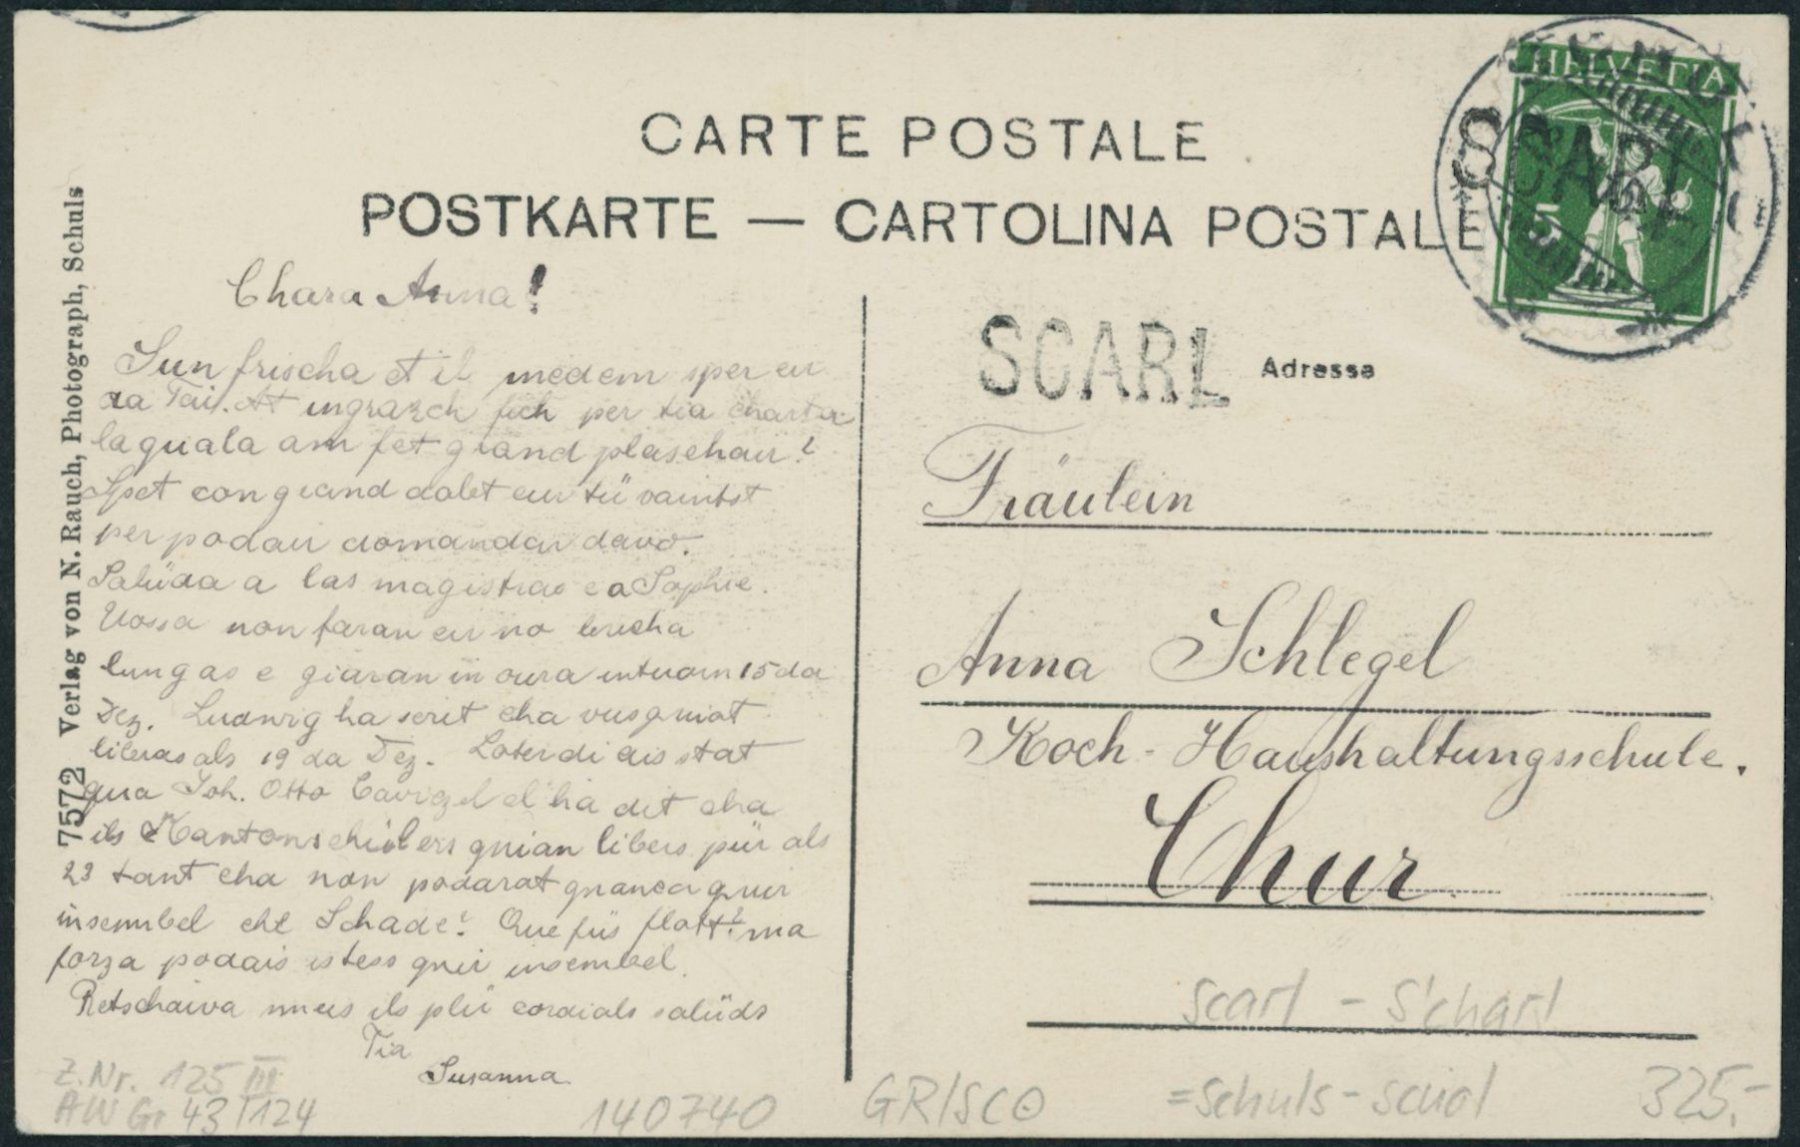 CARTE POSTALE
POSTKARTE — CARTOLINA POSTALE
HELVETIA
5
SCARL
SCARL
Adresse
7572 Verlag von N. Rauch, Photograph, Schuls
Chara Anna!
Sun frischa et il medem sper eir
da Tai. At ingrazch fich per tia charta
la quala am fet grand plaschair!
Spet con grand dalet eir tü vaintst
per podair domandar davo.
Salüda a las magistras e a Sophie.
Uossa non faran eir no bricha
lungas e giaran in oura intuorn 15 da
Dez. Ludwig ha scrit cha
liberas als 19 da Dez. stat
qua Joh. Otto Cavigzel el ha dit cha
ils Kantonschülers gnian libers pür als
23 tant cha non podarat gnir
insembel eht Schade! Que füs flott! ma
forza podais istess gnir insembel.
Retschaiva ils plü cordials salüds
Tia
Susanna
Fräulein
Anna Schlegel
Koch-Haushaltungsschule.
Chur
scarl - S'charl
= Schuls - scuol
325.-
GRISCO
140740
Z.Nr. 125 III
AW Gr 43 I 124